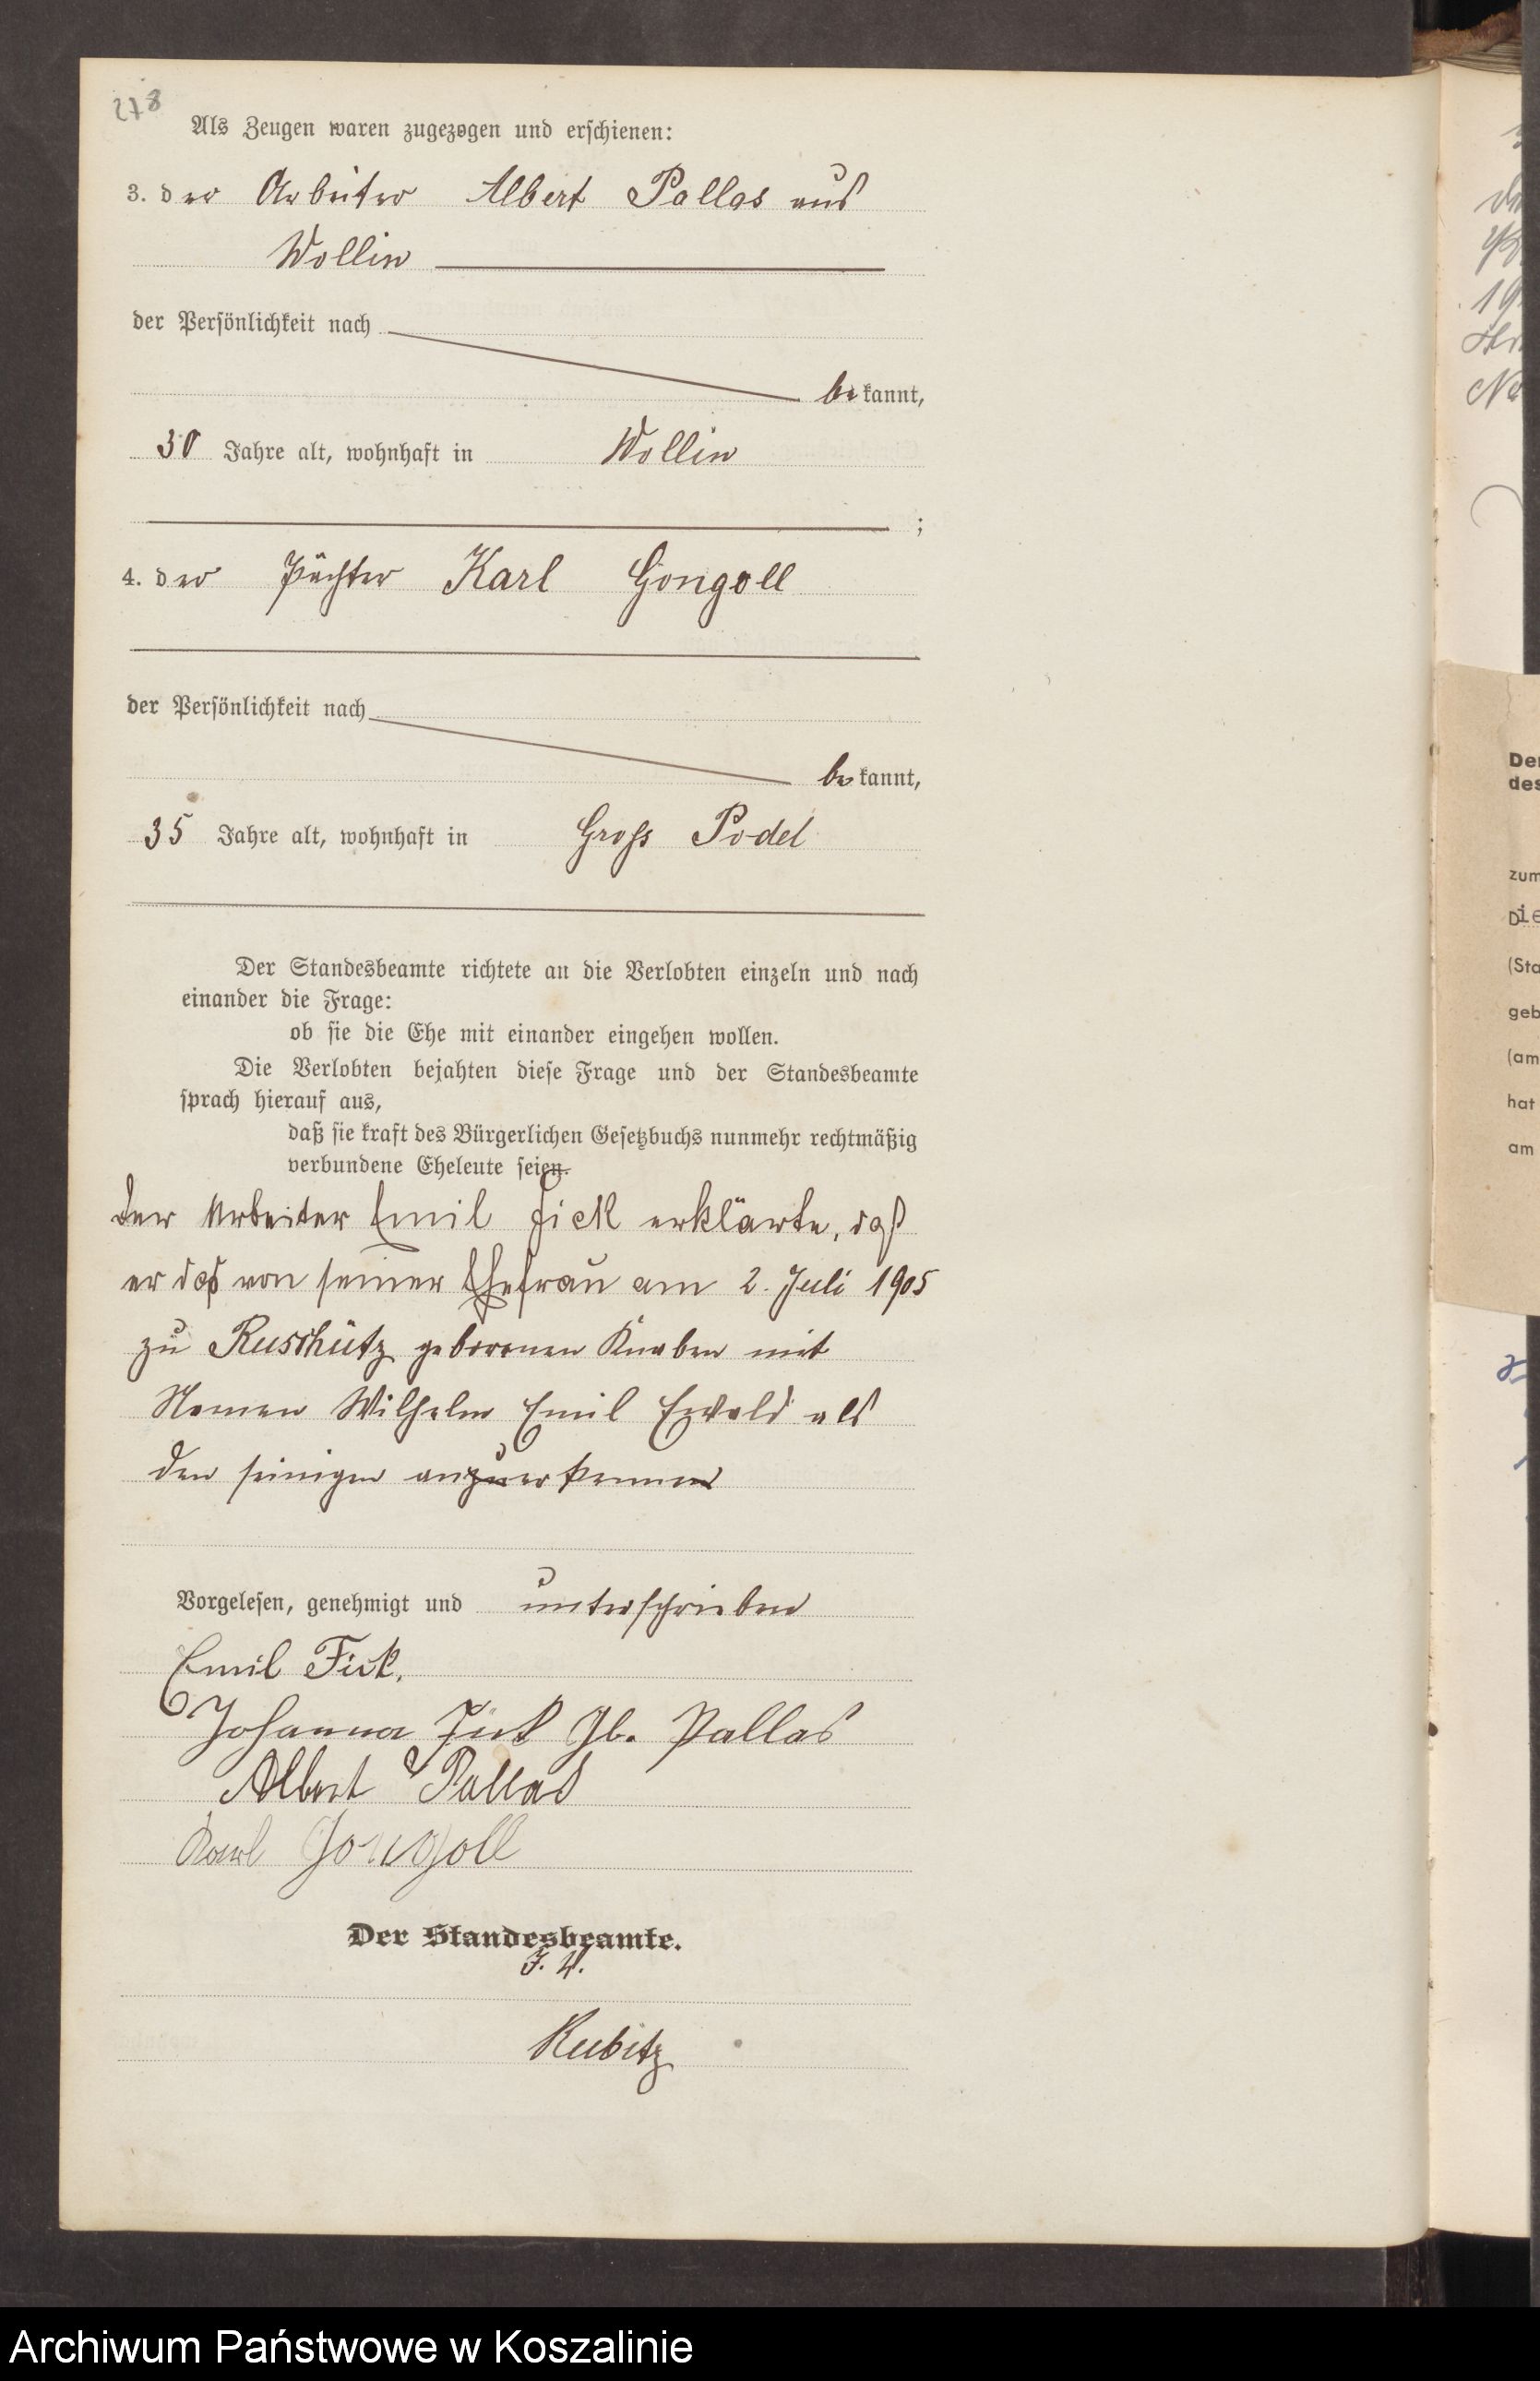 278
Als Zeugen waren zugezogen und erschienen:
3. der Arbeiter Albert Pallas aus
Wollin
der Persönlichkeit nach
bekannt,
30 Jahre alt, wohnhaft in Wollin
;
4. der Pächter Karl Gongoll
der Persönlichkeit nach
bekannt,
35 Jahre alt, wohnhaft in Gross Podel
Der Standesbeamte richtete an die Verlobten einzeln und nach
einander die Frage:
ob sie die Ehe mit einander eingehen wollen.
Die Verlobten bejahten diese Frage und der Standesbeamte
sprach hierauf aus,
daß sie kraft des Bürgerlichen Gesetzbuchs nunmehr rechtmäßig
verbundene Eheleute seien.
Der Arbeiter Emil Fick erklärte, daß
er das von seiner Ehefrau am 2. Juli 1905
zu Ruschütz geborenen Knaben mit
Namen Wilhelm Emil Ewald als
den seinigen anzuerkennen
Vorgelesen, genehmigt und unterschrieben
Emil Fick.
Johanna Fick Gb. Pallas
Albert Pallas
Karl Gongoll
Der Standesbeamte.
J. V.
Kubitz
19
Der
des
zum
Die
(Sta
geb
(am
hat
am
Archiwum Państwowe w Koszalinie